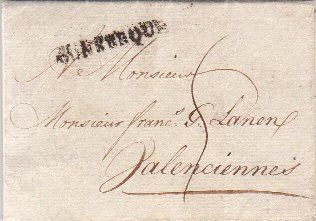 DUNKERQUE
A Monsieur
Monsieur franc.s
Valenciennes